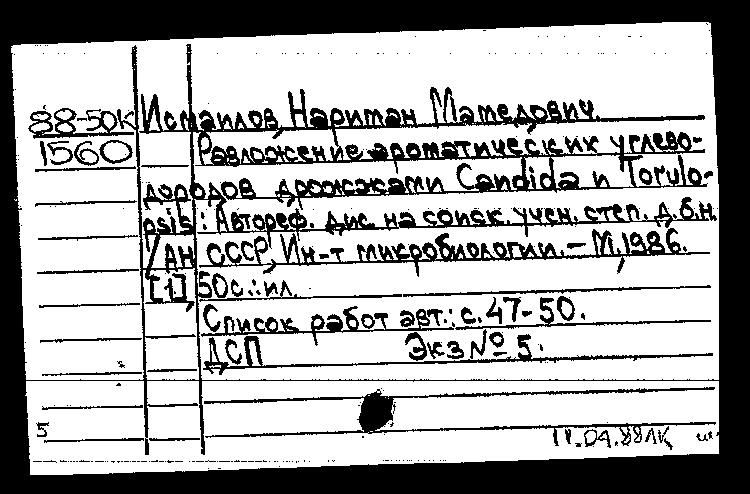 88-50К Исмаилов, Нариман Мамедович.
1560 Разложение ароматических углево-
дородов дрожжами Candida и Torulo-
psis: Автореф. дис. на соиск. учен. степ. д.б.н.
/АН СССР, Ин-т микробиологии. – М., 1986.
[1], 50с.: ил.
Список работ авт.: с. 47-50.
ДСП Экз № 5.
5 11.04.88